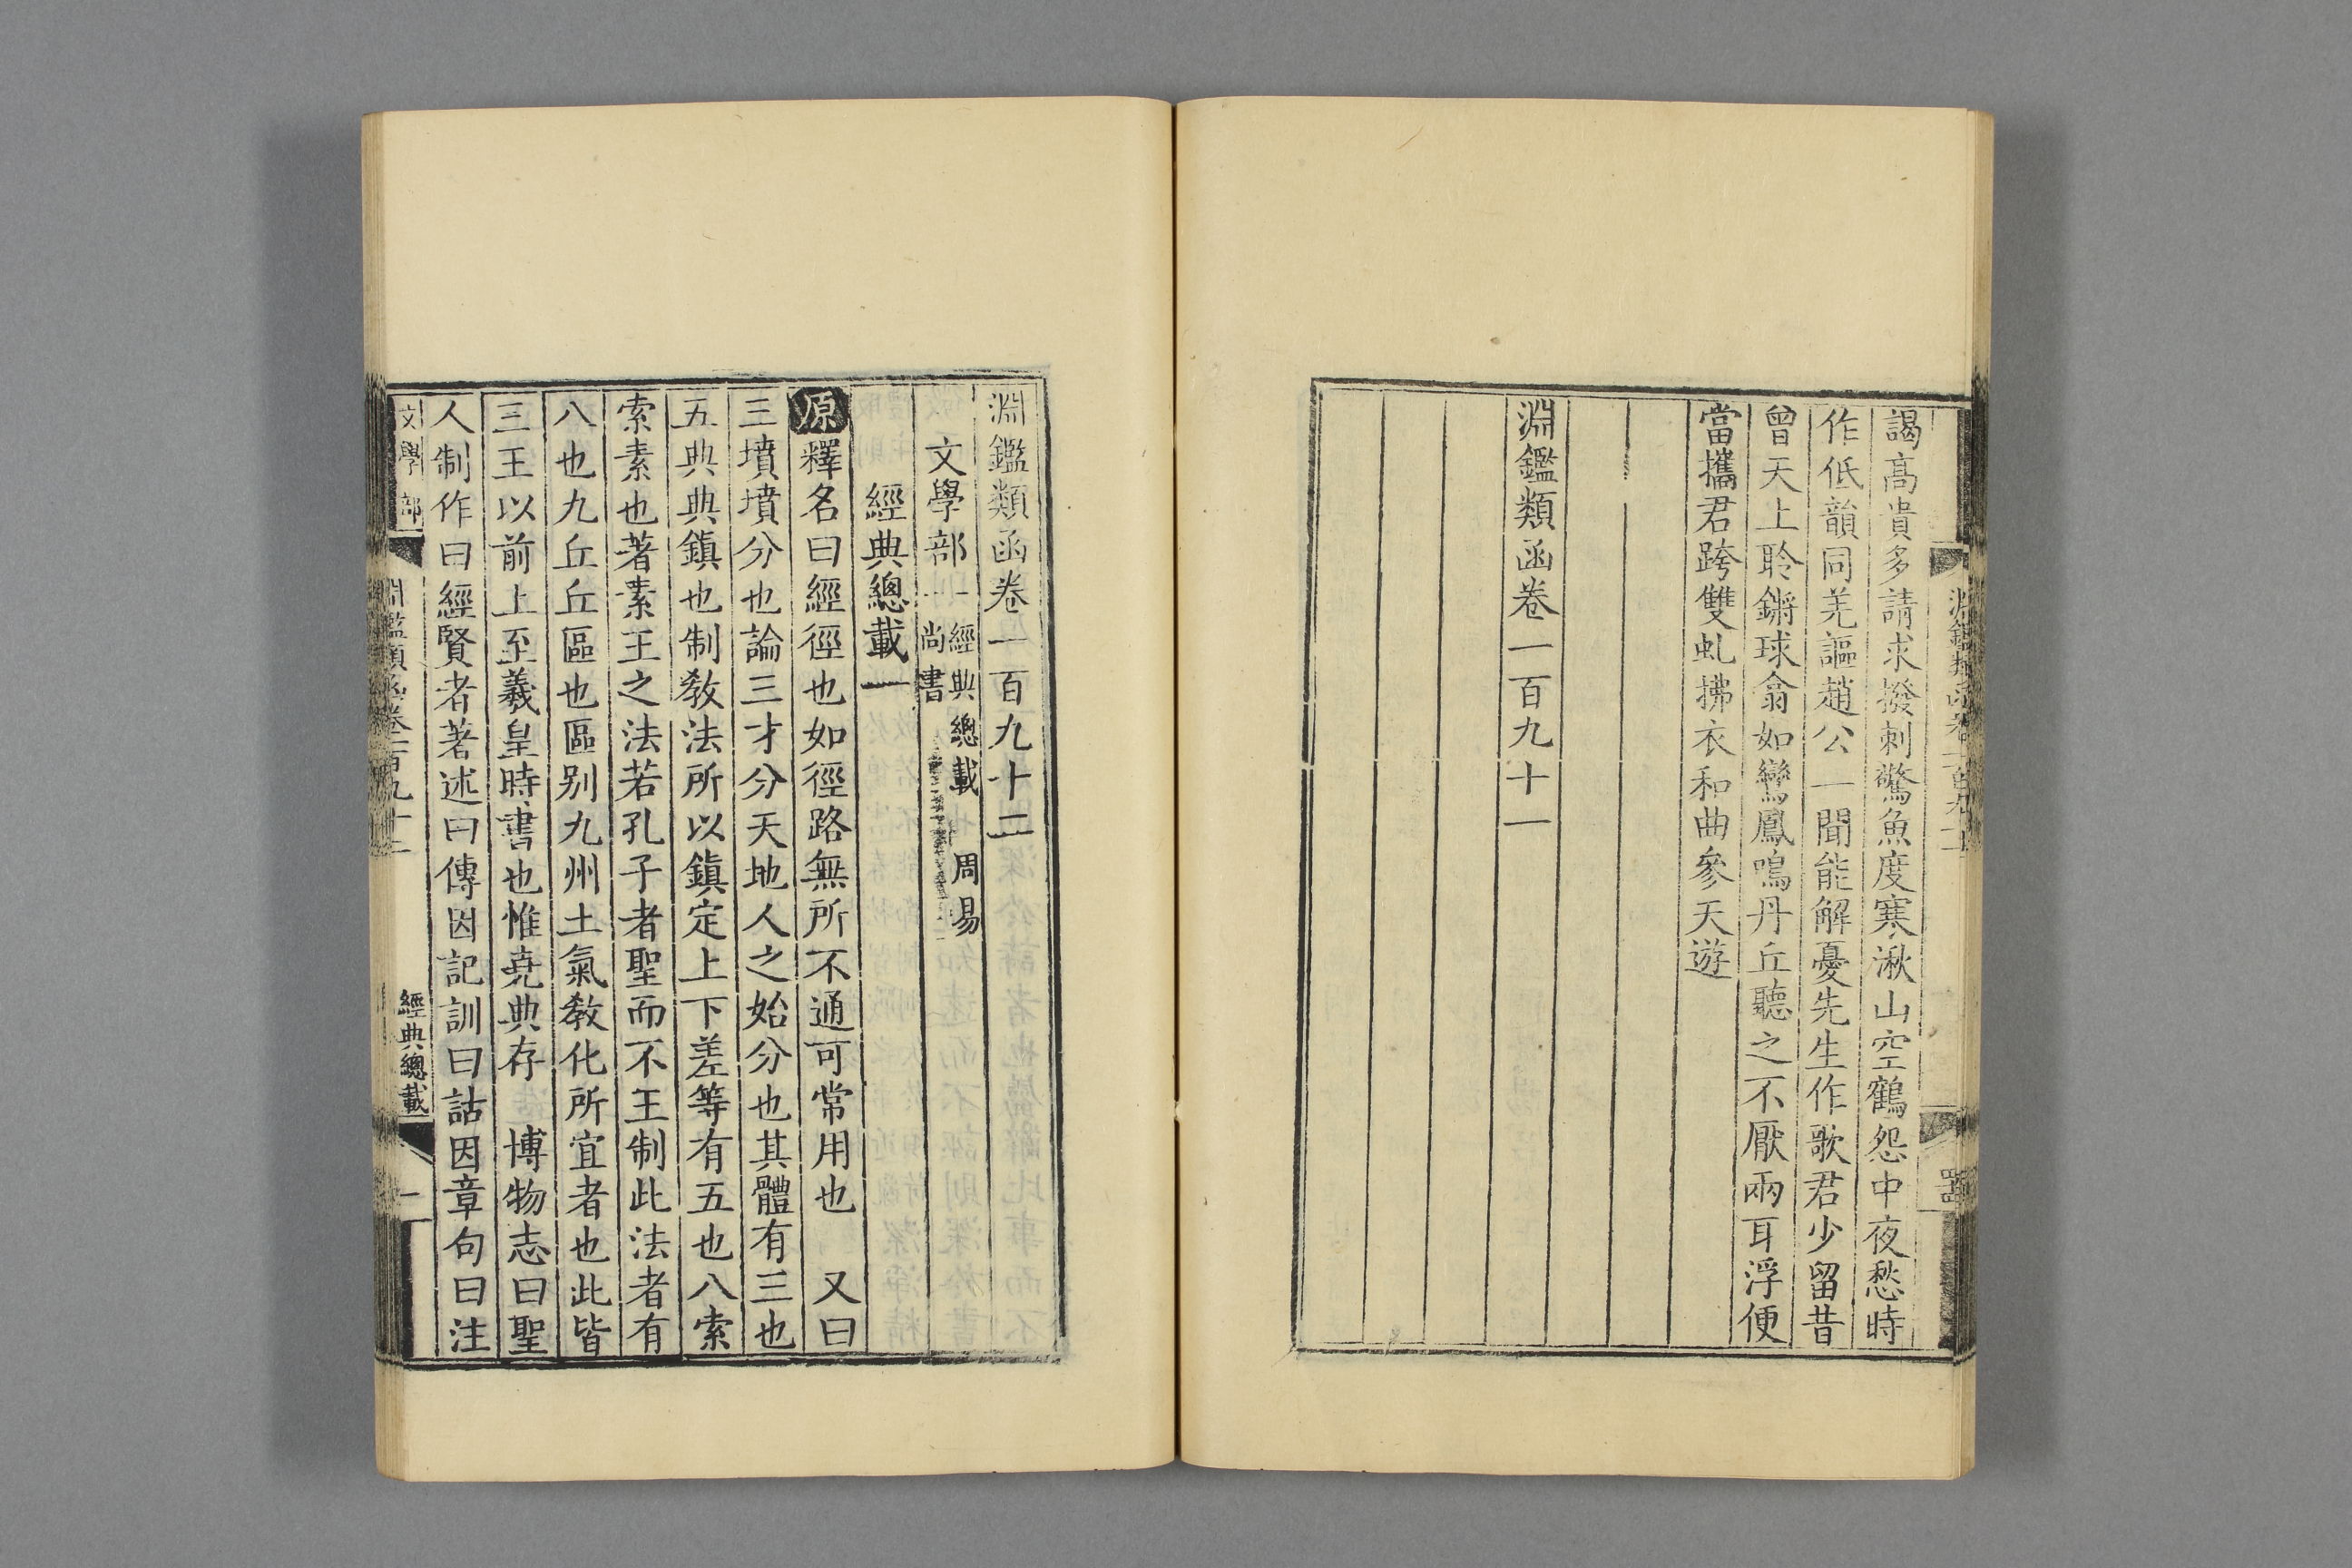 謁高貴多請求撥刺驚魚度寒湫山空鶴怨中夜愁時
作低韻同羌謳趙公一聞能解憂先生作歌君少留昔
曾天上聆鏘球翕如鸞鳳鳴丹丘聽之不厭兩耳浮便
當攜君跨雙虬拂衣和曲參天遊
淵鑑類函卷一百九十一
淵鑑類函卷一百九十二
文學部一 經典總載 周易
尚書
經典總載一
原釋名曰經徑也如徑路無所不通可常用也 又曰
三墳墳分也論三才分天地人之始分也其體有三也
五典典鎮也制敎法所以鎮定上下差等有五也八索
索素也著素王之法若孔子者聖而不王制此法者有
八也九丘丘區也區別九州土氣敎化所宜者也此皆
三王以前上至羲皇時書也惟堯典存 博物志曰聖
人制作曰經賢者著述曰傳因記訓曰詁因章句曰注
文學部
淵鑑類函卷一百九十二
經典總載
一